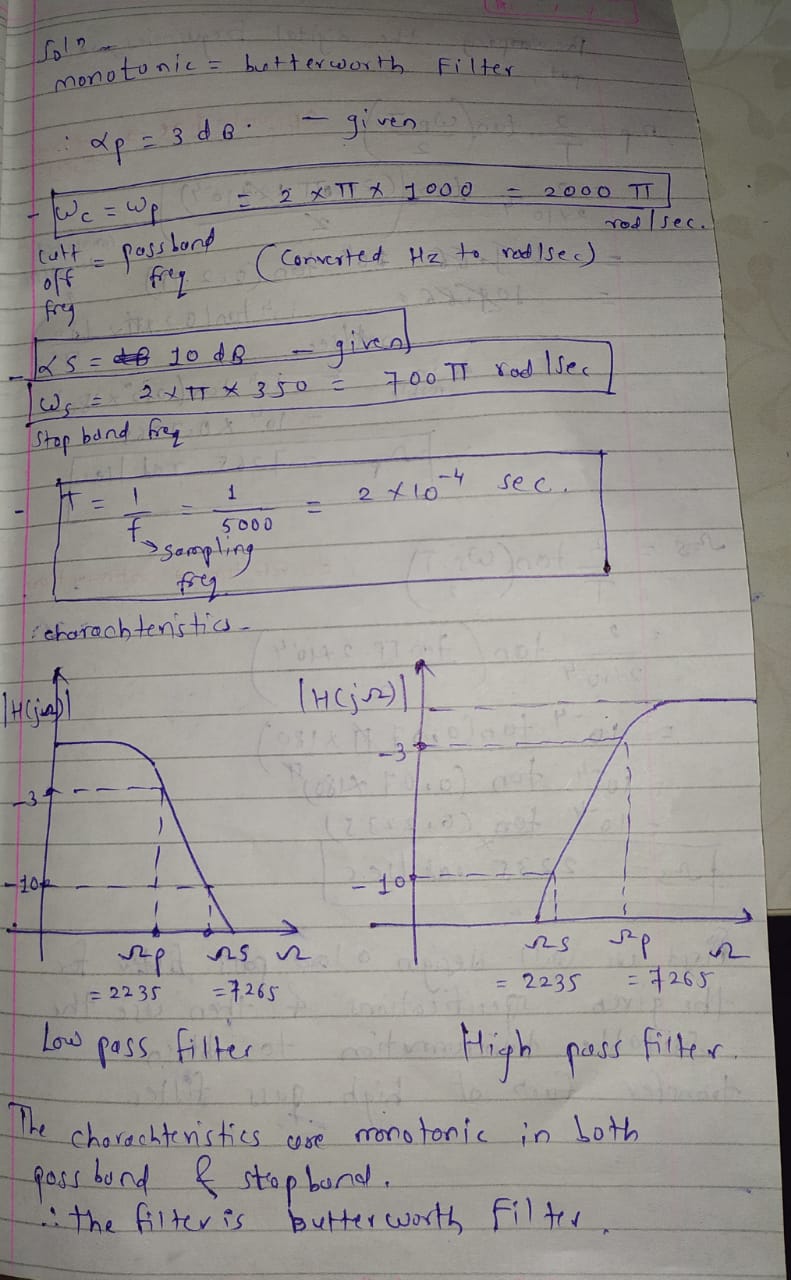 Soln -
monotonic = butterworth Filter
∴ αp = 3 dB. - given
- Wc = Wp = 2 x π x 1000 = 2000 π rad/sec.
cutt off freq = passband freq (converted Hz to rad/sec) -
- αs = 10 dB - given
Ws = 2 x π x 350 = 700 π rad/sec
stop band freq
- T = 1/f = 1/5000 = 2 x 10^-4 sec.
→ sampling freq
: charachteristics -
|H(jΩ)|
-3
-10
Ωp Ωs Ω
= 2235 = 7265
Low pass filter
|H(jΩ)|
-3
-10
Ωs Ωp Ω
= 2235 = 7265
High pass filter.
The charachteristics are monotonic in both
pass band & stop band.
∴ the filter is butterworth filter.